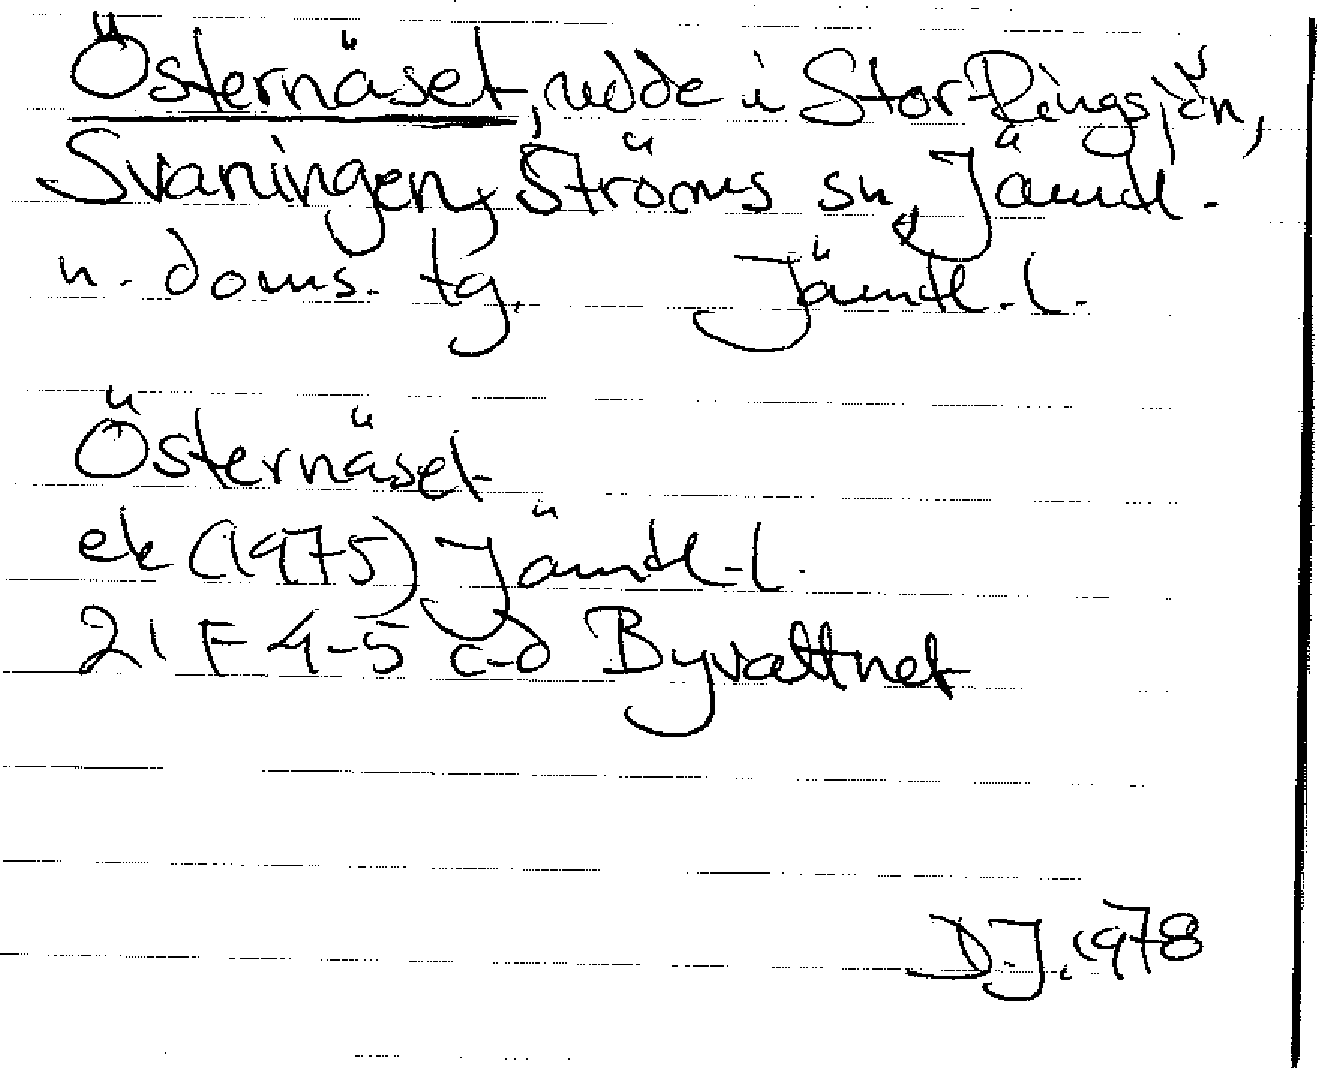 Östernäset, udde i Stor-Ringsjön,
Svaningen, Ströms sn, Jämtl.
n. doms. tg. Jämtl. l.
Östernäset
ek (1975) Jämtl. l.
21 F 4-5 c-d Byvattnet
D.J. 1978